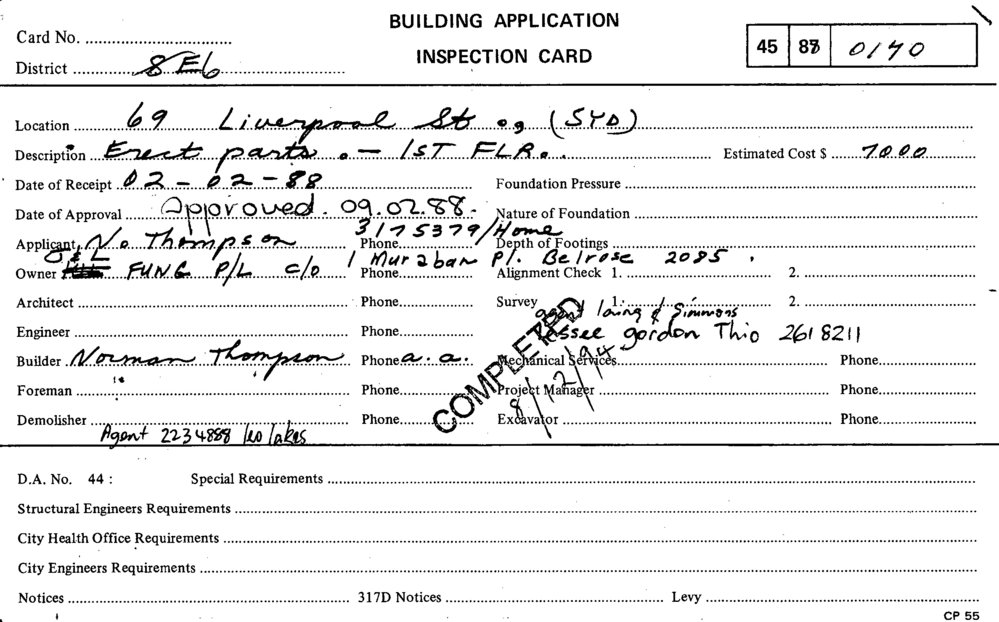 BUILDING APPLICATION
INSPECTION CARD
Card No.
District 8E6
45 88 0140
Location 69 Liverpool St. (SYD)
Description Erect parts. - 1ST FLR. Estimated Cost $ 7000
Date of Receipt 02-02-88 Foundation Pressure
Date of Approval Approved. 09.02.88. Nature of Foundation
Applicant N. Thompson Phone 3175379/Home Depth of Footings
Owner J & L FUNG P/L c/o Phone 1 Muraban Pl. Belrose 2085. Alignment Check 1. 2.
Architect Phone Survey 1. 2.
agent laing & Simmons
Engineer Phone
lessee gordon Thio 2618211
Builder Norman Thompson Phone a.a. Mechanical Services Phone
Foreman Phone Project Manager Phone
Demolisher Phone Excavator Phone
COMPLETED
8/12/94
Agent 2234888 leo lakes
D.A. No. 44 : Special Requirements
Structural Engineers Requirements
City Health Office Requirements
City Engineers Requirements
Notices 317D Notices Levy
CP 55